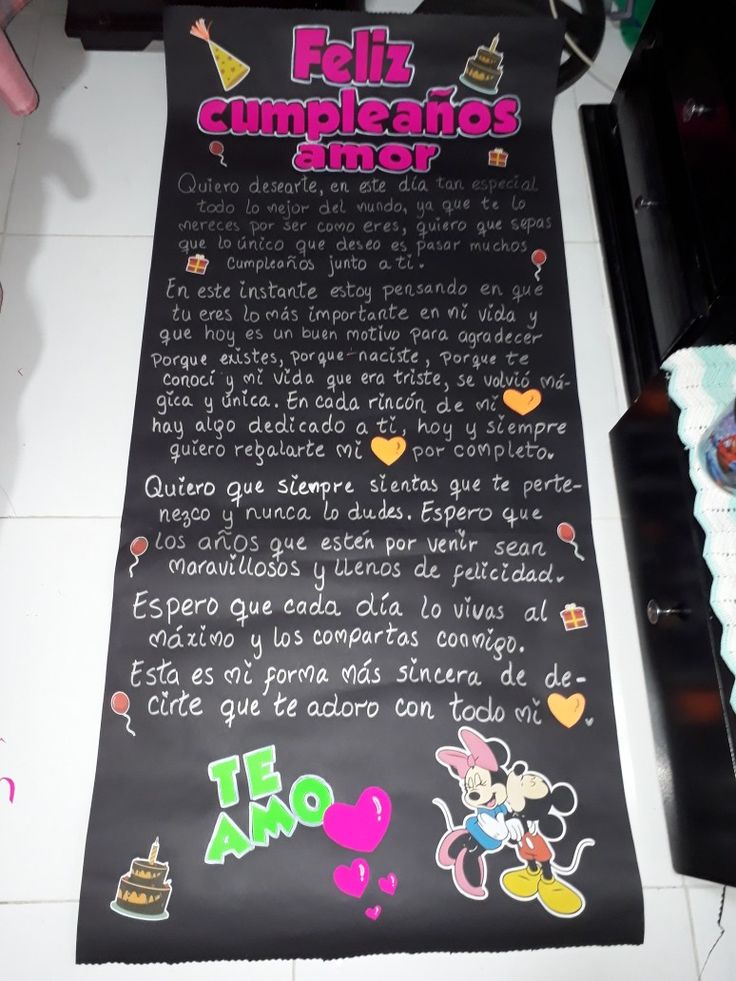 Feliz
cumpleaños
amor
Quiero desearte, en este día tan especial
todo lo mejor del mundo, ya que te lo
mereces por ser como eres, quiero que sepas
que lo único que deseo es pasar muchos
cumpleaños junto a ti.
En este instante estoy pensando en que
tu eres lo más importante en mi vida y
que hoy es un buen motivo para agradecer
porque existes, porque naciste, porque te
conocí y mi vida que era triste, se volvió má-
gica y única. En cada rincón de mi
hay algo dedicado a ti, hoy y siempre
quiero regalarte mi por completo.
Quiero que siempre sientas que te perte-
nezco y nunca lo dudes. Espero que
los años que estén por venir sean
maravillosos y llenos de felicidad.
Espero que cada día lo vivas al
máximo y los compartas conmigo.
Esta es mi forma más sincera de de-
cirte que te adoro con todo mi .
TE
AMO